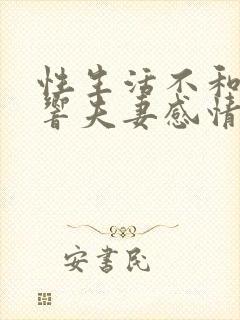 性生活不和
响夫妻感情
安書民